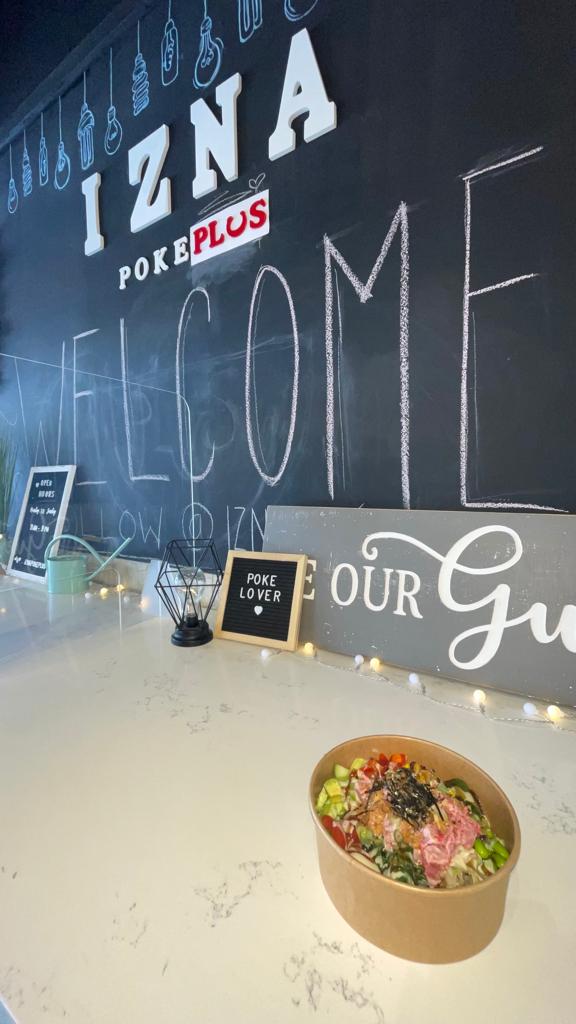 IZNA
POKE PLUS
WELCOME
FOLLOW @ IZN
OPEN
HOURS
POKE
LOVER
E OUR Gu